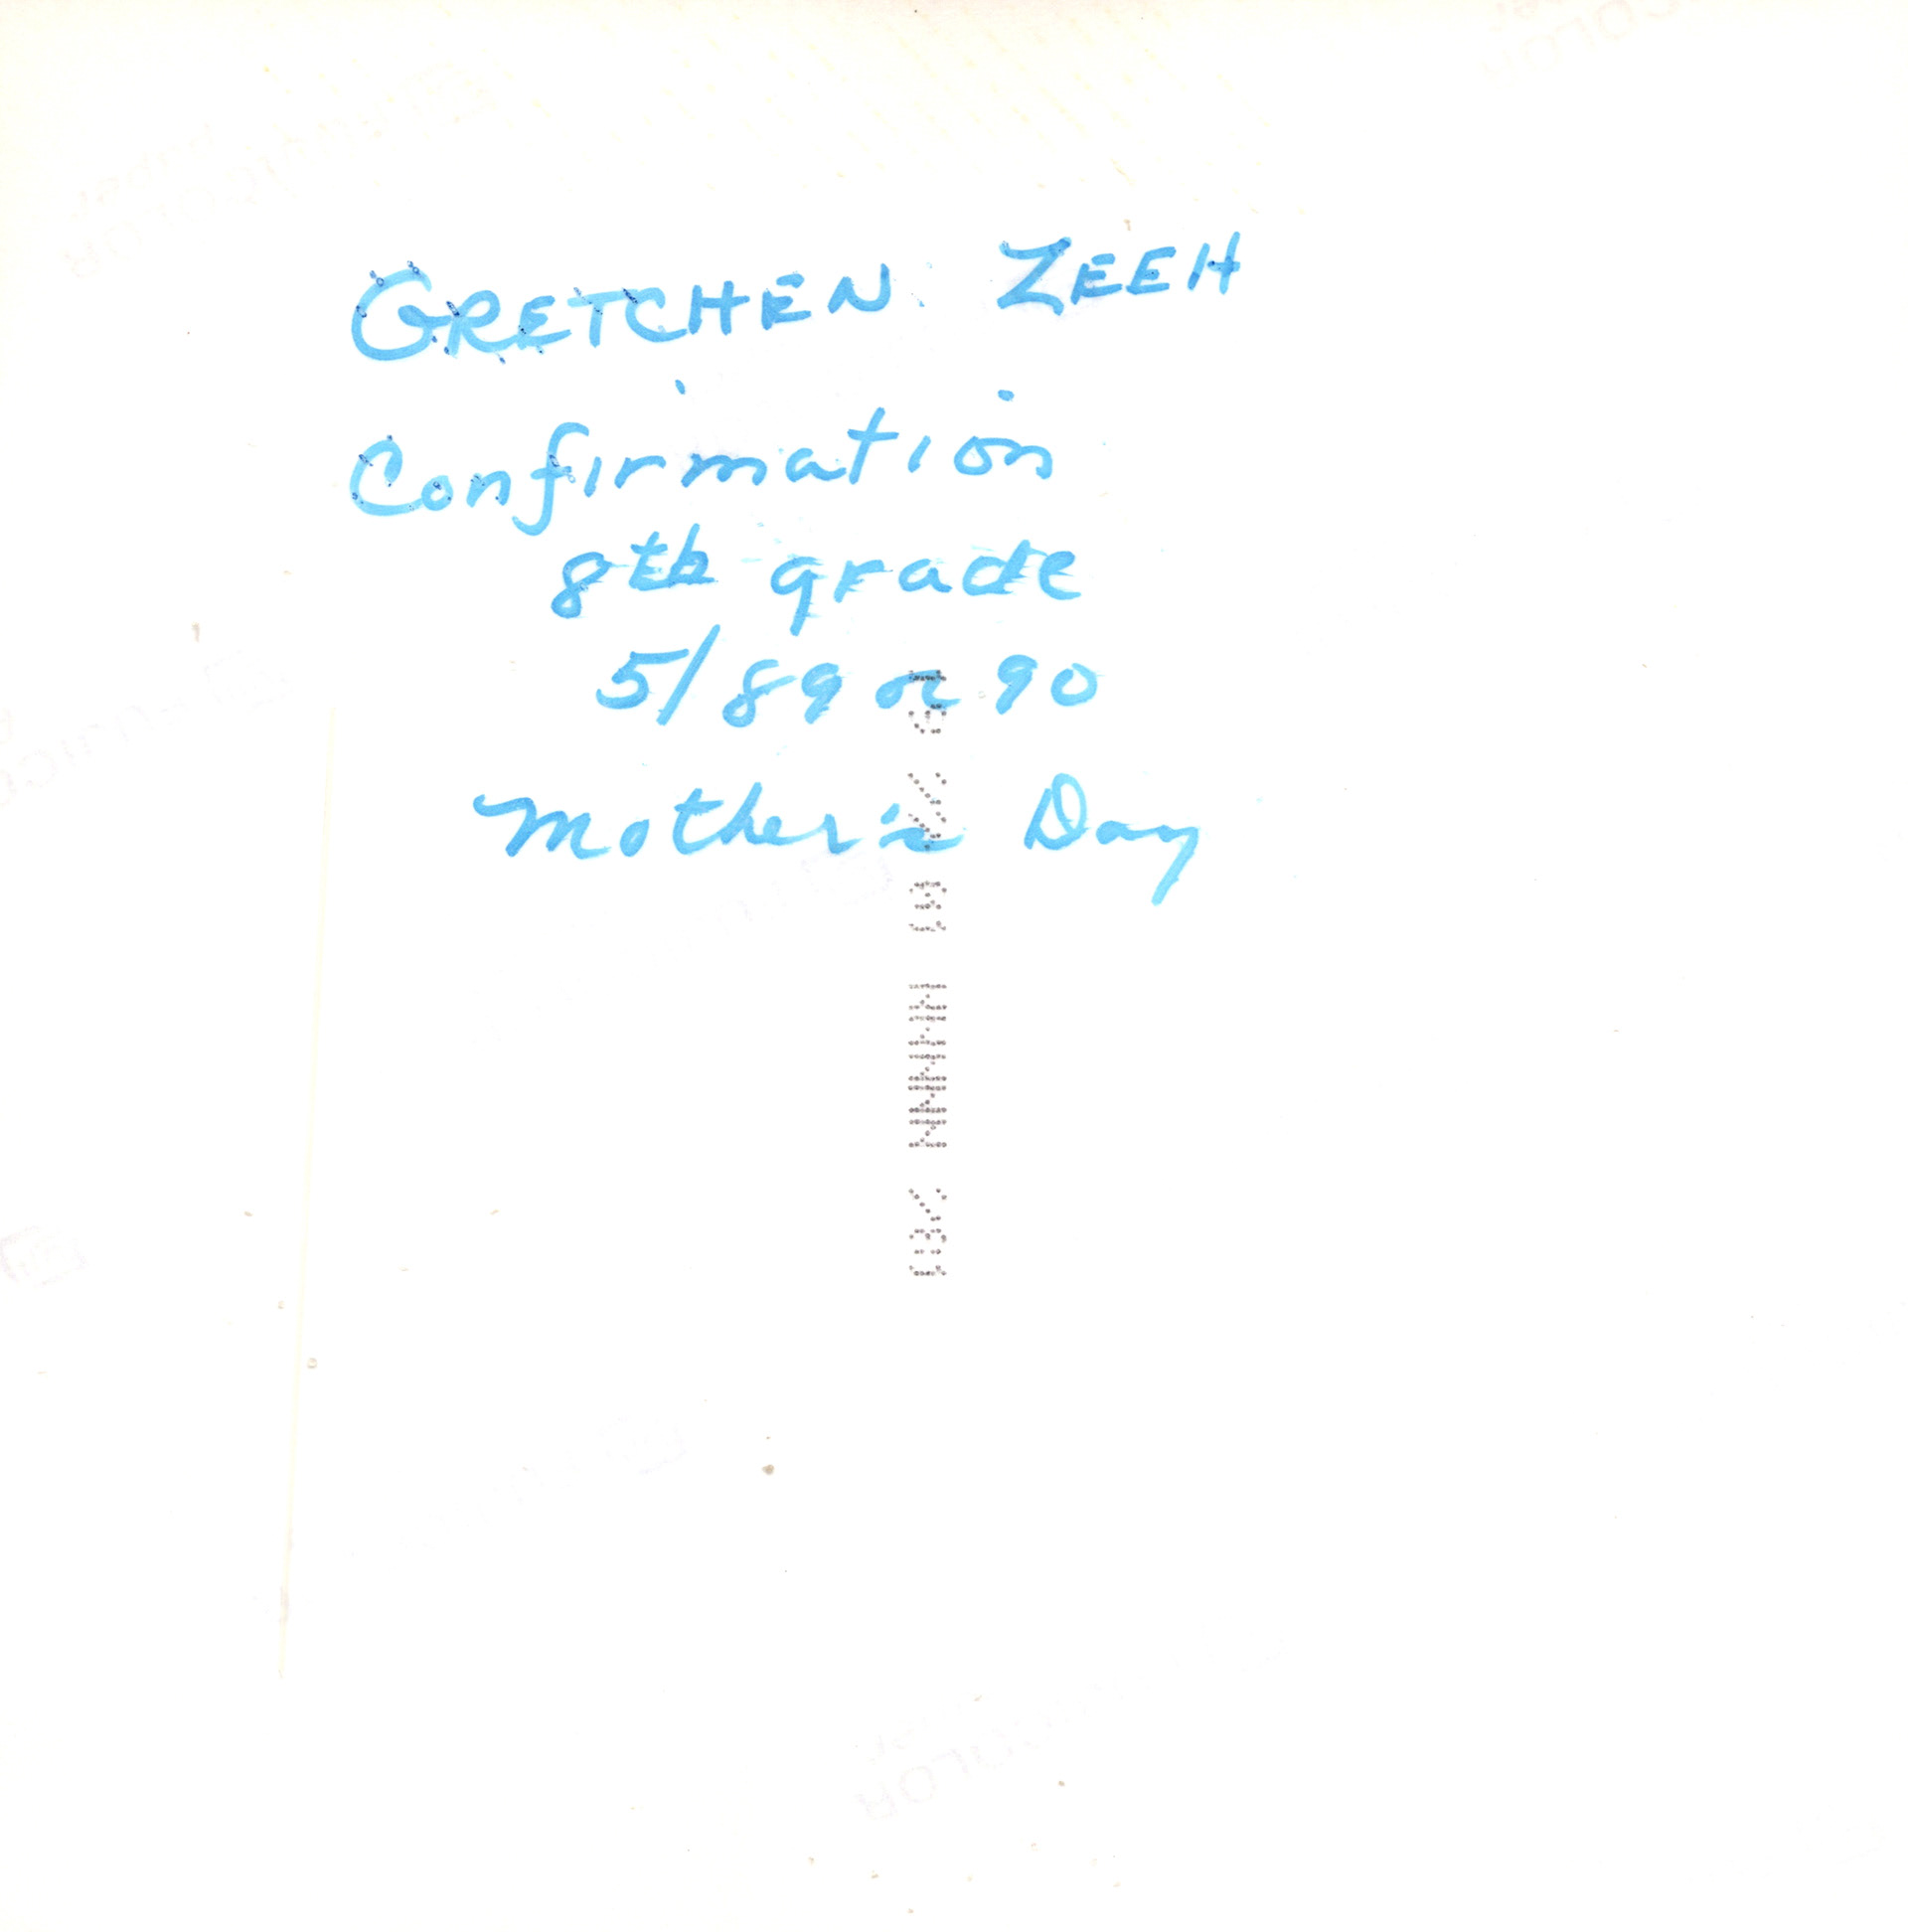 GRETCHEN ZEEH
Confirmation
8th grade
5/89 or 90
Mother's Day